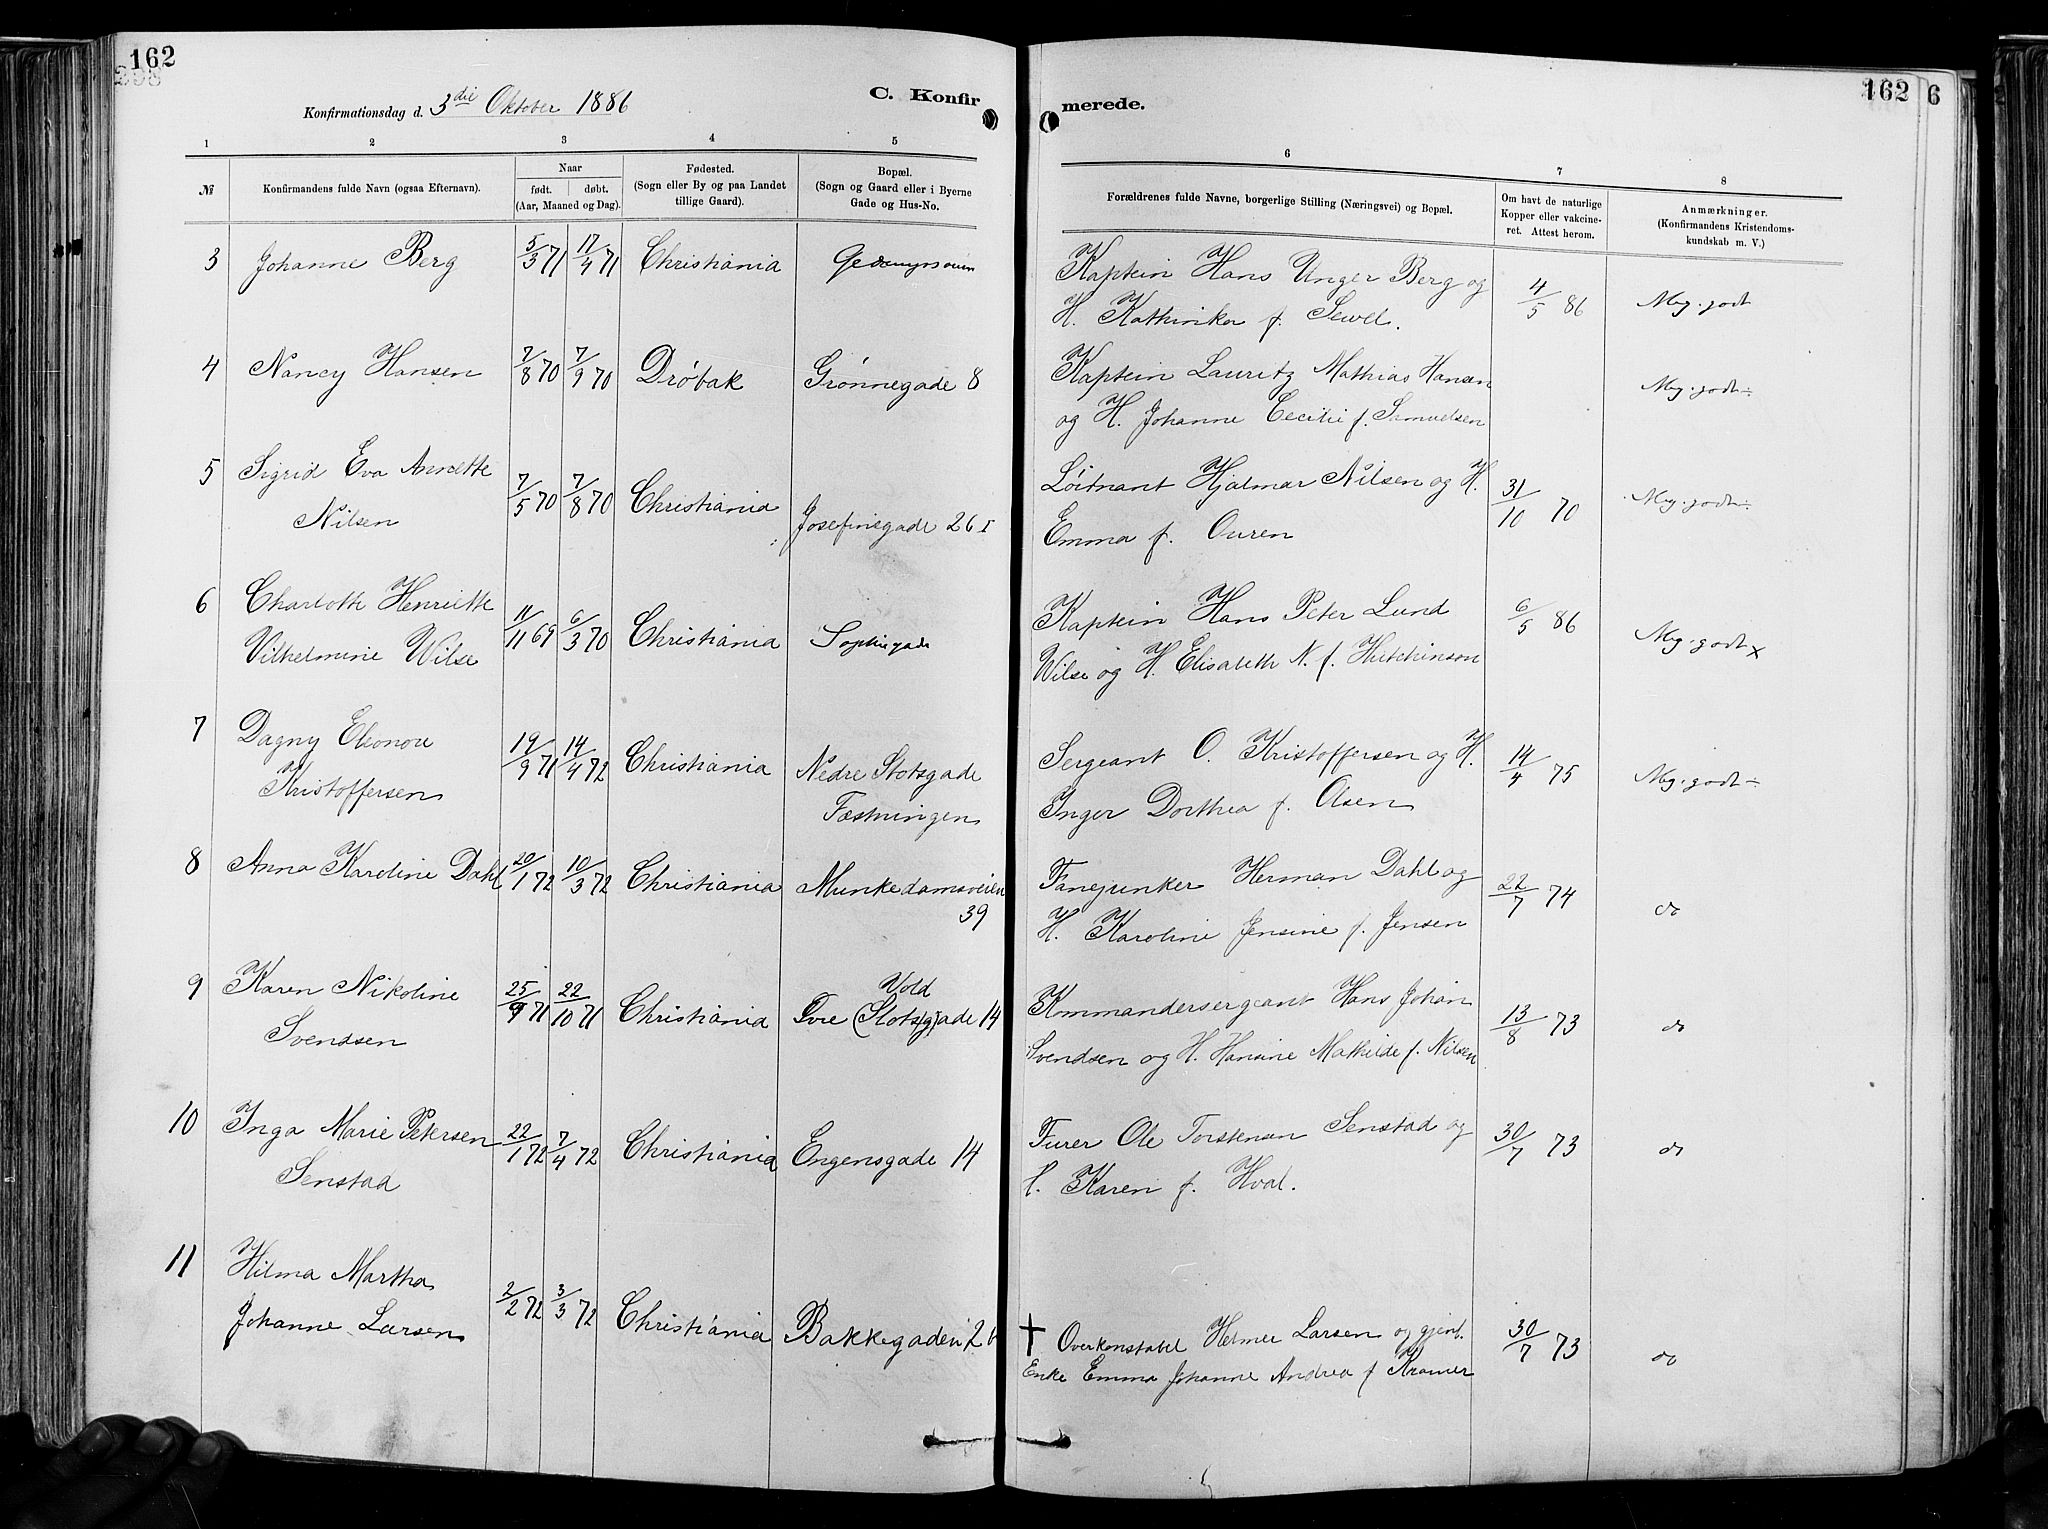 162
Konfirmationsdag d. 3die Oktober 1886
C. Konfir
1 2 3 4 5
№
Konfirmandens fulde Navn (ogsaa Efternavn).
Naar
født. døbt.
(Aar, Maaned og Dag).
Fødested.
(Sogn eller By og paa Landet
tillige Gaard).
Bopæl.
(Sogn og Gaard eller i Byerne
Gade og Hus-No.
3 Johanne Berg 5/3 71 17/4 71 Christiania
4 Nancy Hansen 7/8 70 7/9 70 Drøbak Grønnegade 8
5 Sigrid Eva Annette
Nilsen 7/5 70 7/8 70 Christiania Josefinegade 26 I
6 Charlotte Henriette
Vilhelmine Wilse 11/11 69 6/3 70 Christiania Sophiegade
7 Dagny Eleonore
Kristoffersen 19/9 71 14/4 72 Christiania Nedre Slotsgade
Fæstningen
8 Anna Karoline Dahl 20/1 72 10/3 72 Christiania Munkedamsveien
39
9 Karen Nikoline
Vold
Svendsen 25/9 71 22/10 71 Christiania Øvre (Slots)gade 14
10 Inga Marie Petersen
Senstad 22/1 72 7/4 72 Christiania Engensgade 14
11 Hilma Martha
Johanne Larsen 2/2 72 3/3 72 Christiania Bakkegaden 26
merede.
162
6
6 7 8
Forældrenes fulde Navne, borgerlige Stilling (Næringsvei) og Bopæl.
Om havt de naturlige
Kopper eller vakcine-
ret. Attest herom.
Anmærkninger.
(Konfirmandens Kristendoms-
kundskab m. V.)
Kaptein Hans Unger Berg og
H. Kathinka f. Sewel. 4/5 86 Meg. godt
Kaptein Lauritz Mathias Hansen
og H. Johanne Cecilie f. Samuelsen Meg. godt ÷
Løitnant Hjalmar Nilsen og H.
Emma f. Ouren 31/10 70 Meg. godt ÷
Kaptein Hans Peter Lund
Wilse og H. Elisabeth N. f. Hutchinson 6/5 86 Meg. godt x
Sergeant O. Kristoffersen og H.
Inger Dorthea f. Olsen 14/4 75 Meg. godt ÷
Fanejunker Herman Dahl og
H. Karoline Jensine f. Jensen 22/7 74 do
Kommandersergeant Hans Johan
Svendsen og H. Hansine Mathilde f. Nilsen 13/8 73 do
Furer Ole Torstensen Senstad og
H. Karen f. Hval. 30/7 73 do
† Overkonstabel Helmer Larsen og gjenl.
Enke Emma Johanne Andrea f Kramer 30/7 73 do